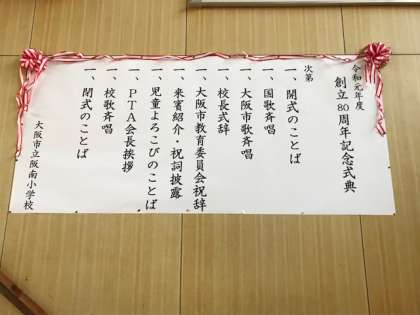 令和元年度
創立80周年記念式典
次第
一、開式のことば
一、国歌斉唱
一、大阪市歌斉唱
一、校長式辞
一、大阪市教育委員会祝辞
一、来賓紹介・祝詞披露
一、児童よろこびのことば
一、PTA会長挨拶
一、校歌斉唱
一、閉式のことば
大阪市立阪南小学校